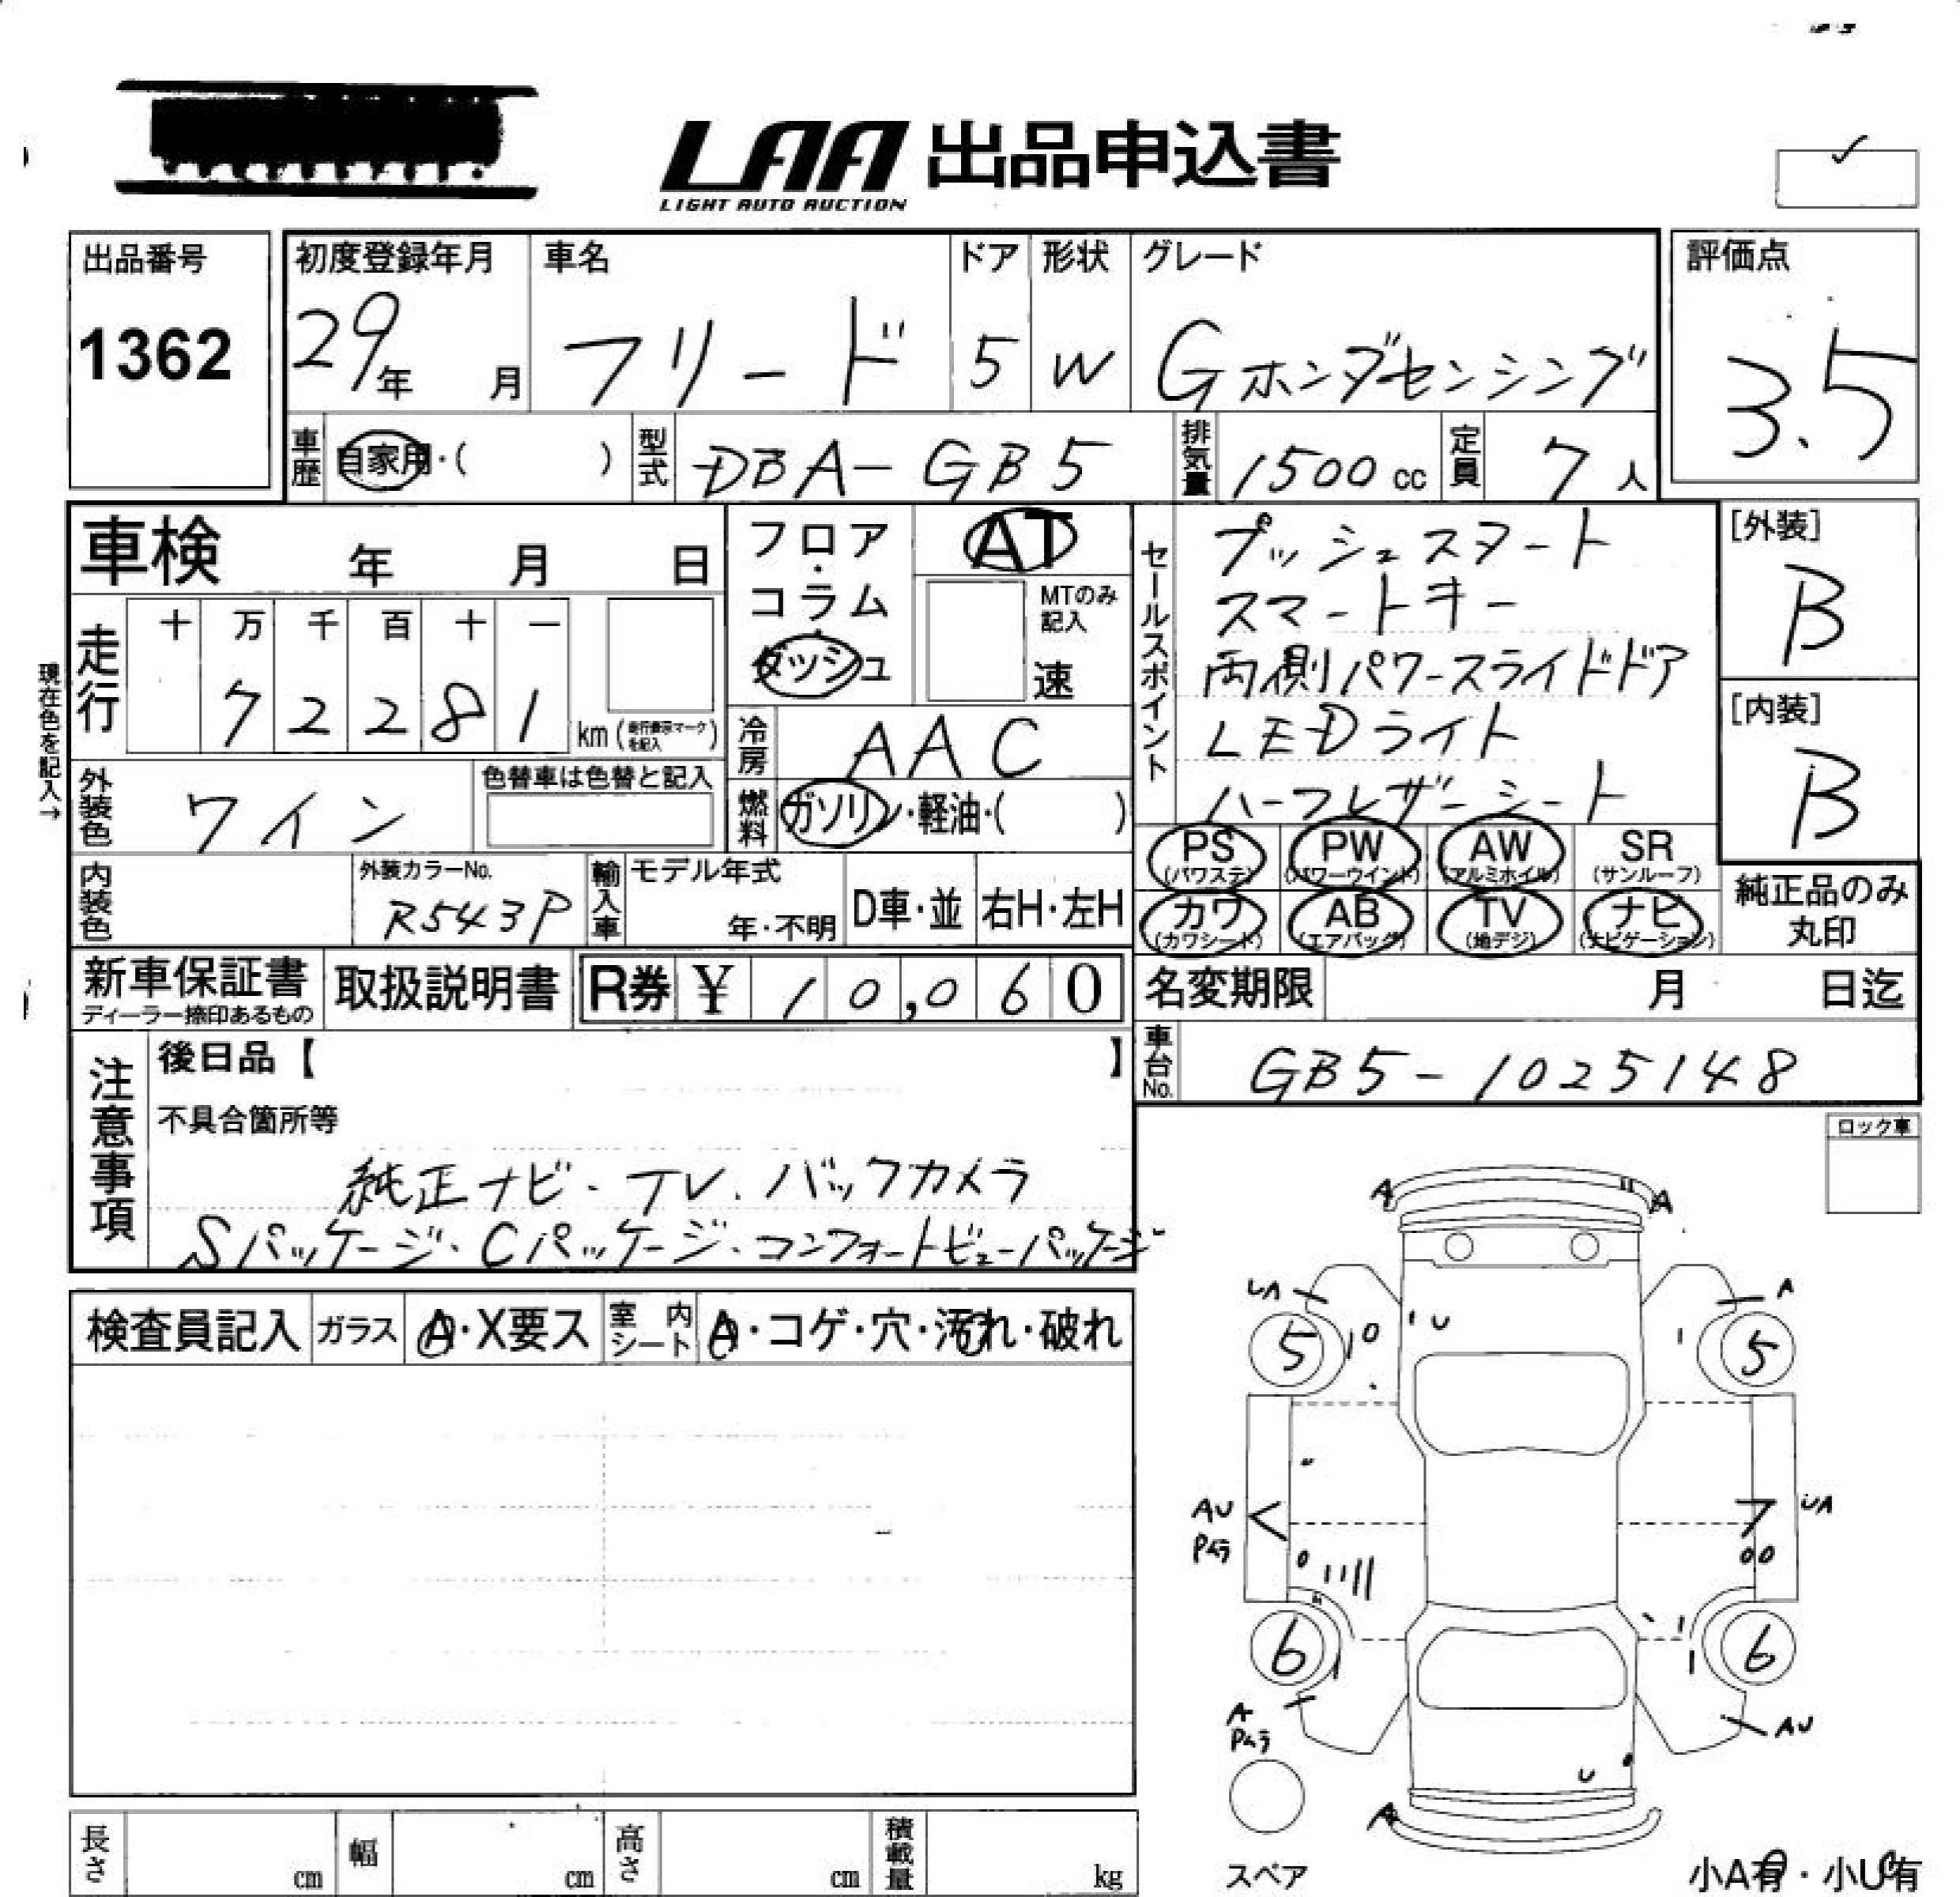 LAA 出品申込書
LIGHT AUTO AUCTION
出品番号 1362
初度登録年月 29年 月
車名 フリード
ドア 5
形状 W
グレード Gホンダセンシング
評価点 3.5
車歴 自家用・( )
型式 DBA-GB5
排気量 1500cc
定員 7人
車検 年 月 日
フロア・コラム・ダッシュ
AT
MTのみ記入 速
走行 十 万 千 百 十 一
7 2 2 8 1 km(走行表示マークを記入)
現在色を記入→
外装色 ワイン
色替車は色替と記入
冷房 AAC
燃料 ガソリン・軽油・( )
セールスポイント
プッシュスタート
スマートキー
両側パワースライドドア
LEDライト
ハーフレザーシート
[外装] B
[内装] B
内装色
外装カラーNo. R543P
輸入車 モデル年式 年・不明
D車・並 右H・左H
PS (パワステ) PW (パワーウインド) AW (アルミホイル) SR (サンルーフ)
カワ (カワシート) AB (エアバッグ) TV (地デジ) ナビ (ナビゲーション)
純正品のみ丸印
新車保証書
ディーラー捺印あるもの
取扱説明書
R券 ¥ 10,060
名変期限 月 日迄
車台No. GB5-1025148
注意事項
後日品【 】
不具合箇所等
純正ナビ・TV.バックカメラ
Sパッケージ・Cパッケージ・コンフォートビューパッケージ
ロック車
検査員記入 ガラス A・X要ス 室内シート A・コゲ・穴・汚れ・破れ
A A
UA A
5 5
U
AU UA
Pムラ
6 6
A AU
Pムラ
U
A
スペア
小A有・小U有
長さ cm 幅 cm 高さ cm 積載量 kg